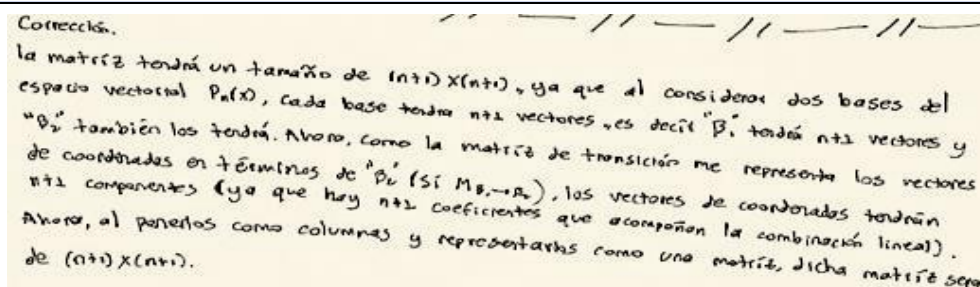 Corrección.
la matríz tendrá un tamaño de (n+1)X(n+1), ya que al considerar dos bases del
espacio vectorial Pn(x), cada base tendra n+1 vectores, es decir "B1 tendrá n+1 vectores y
"B2" también los tendrá. Ahora, como la matríz de transición me representa los vectores
de coordenadas en términos de "B2" (Sí MB1→B2), los vectores de coordenadas tendrán
n+1 componentes (ya que hay n+1 coeficientes que acompañan la combinación lineal).
Ahora, al ponerlos como columnas y representarlos como una matríz, dicha matríz será
de (n+1)X(n+1).